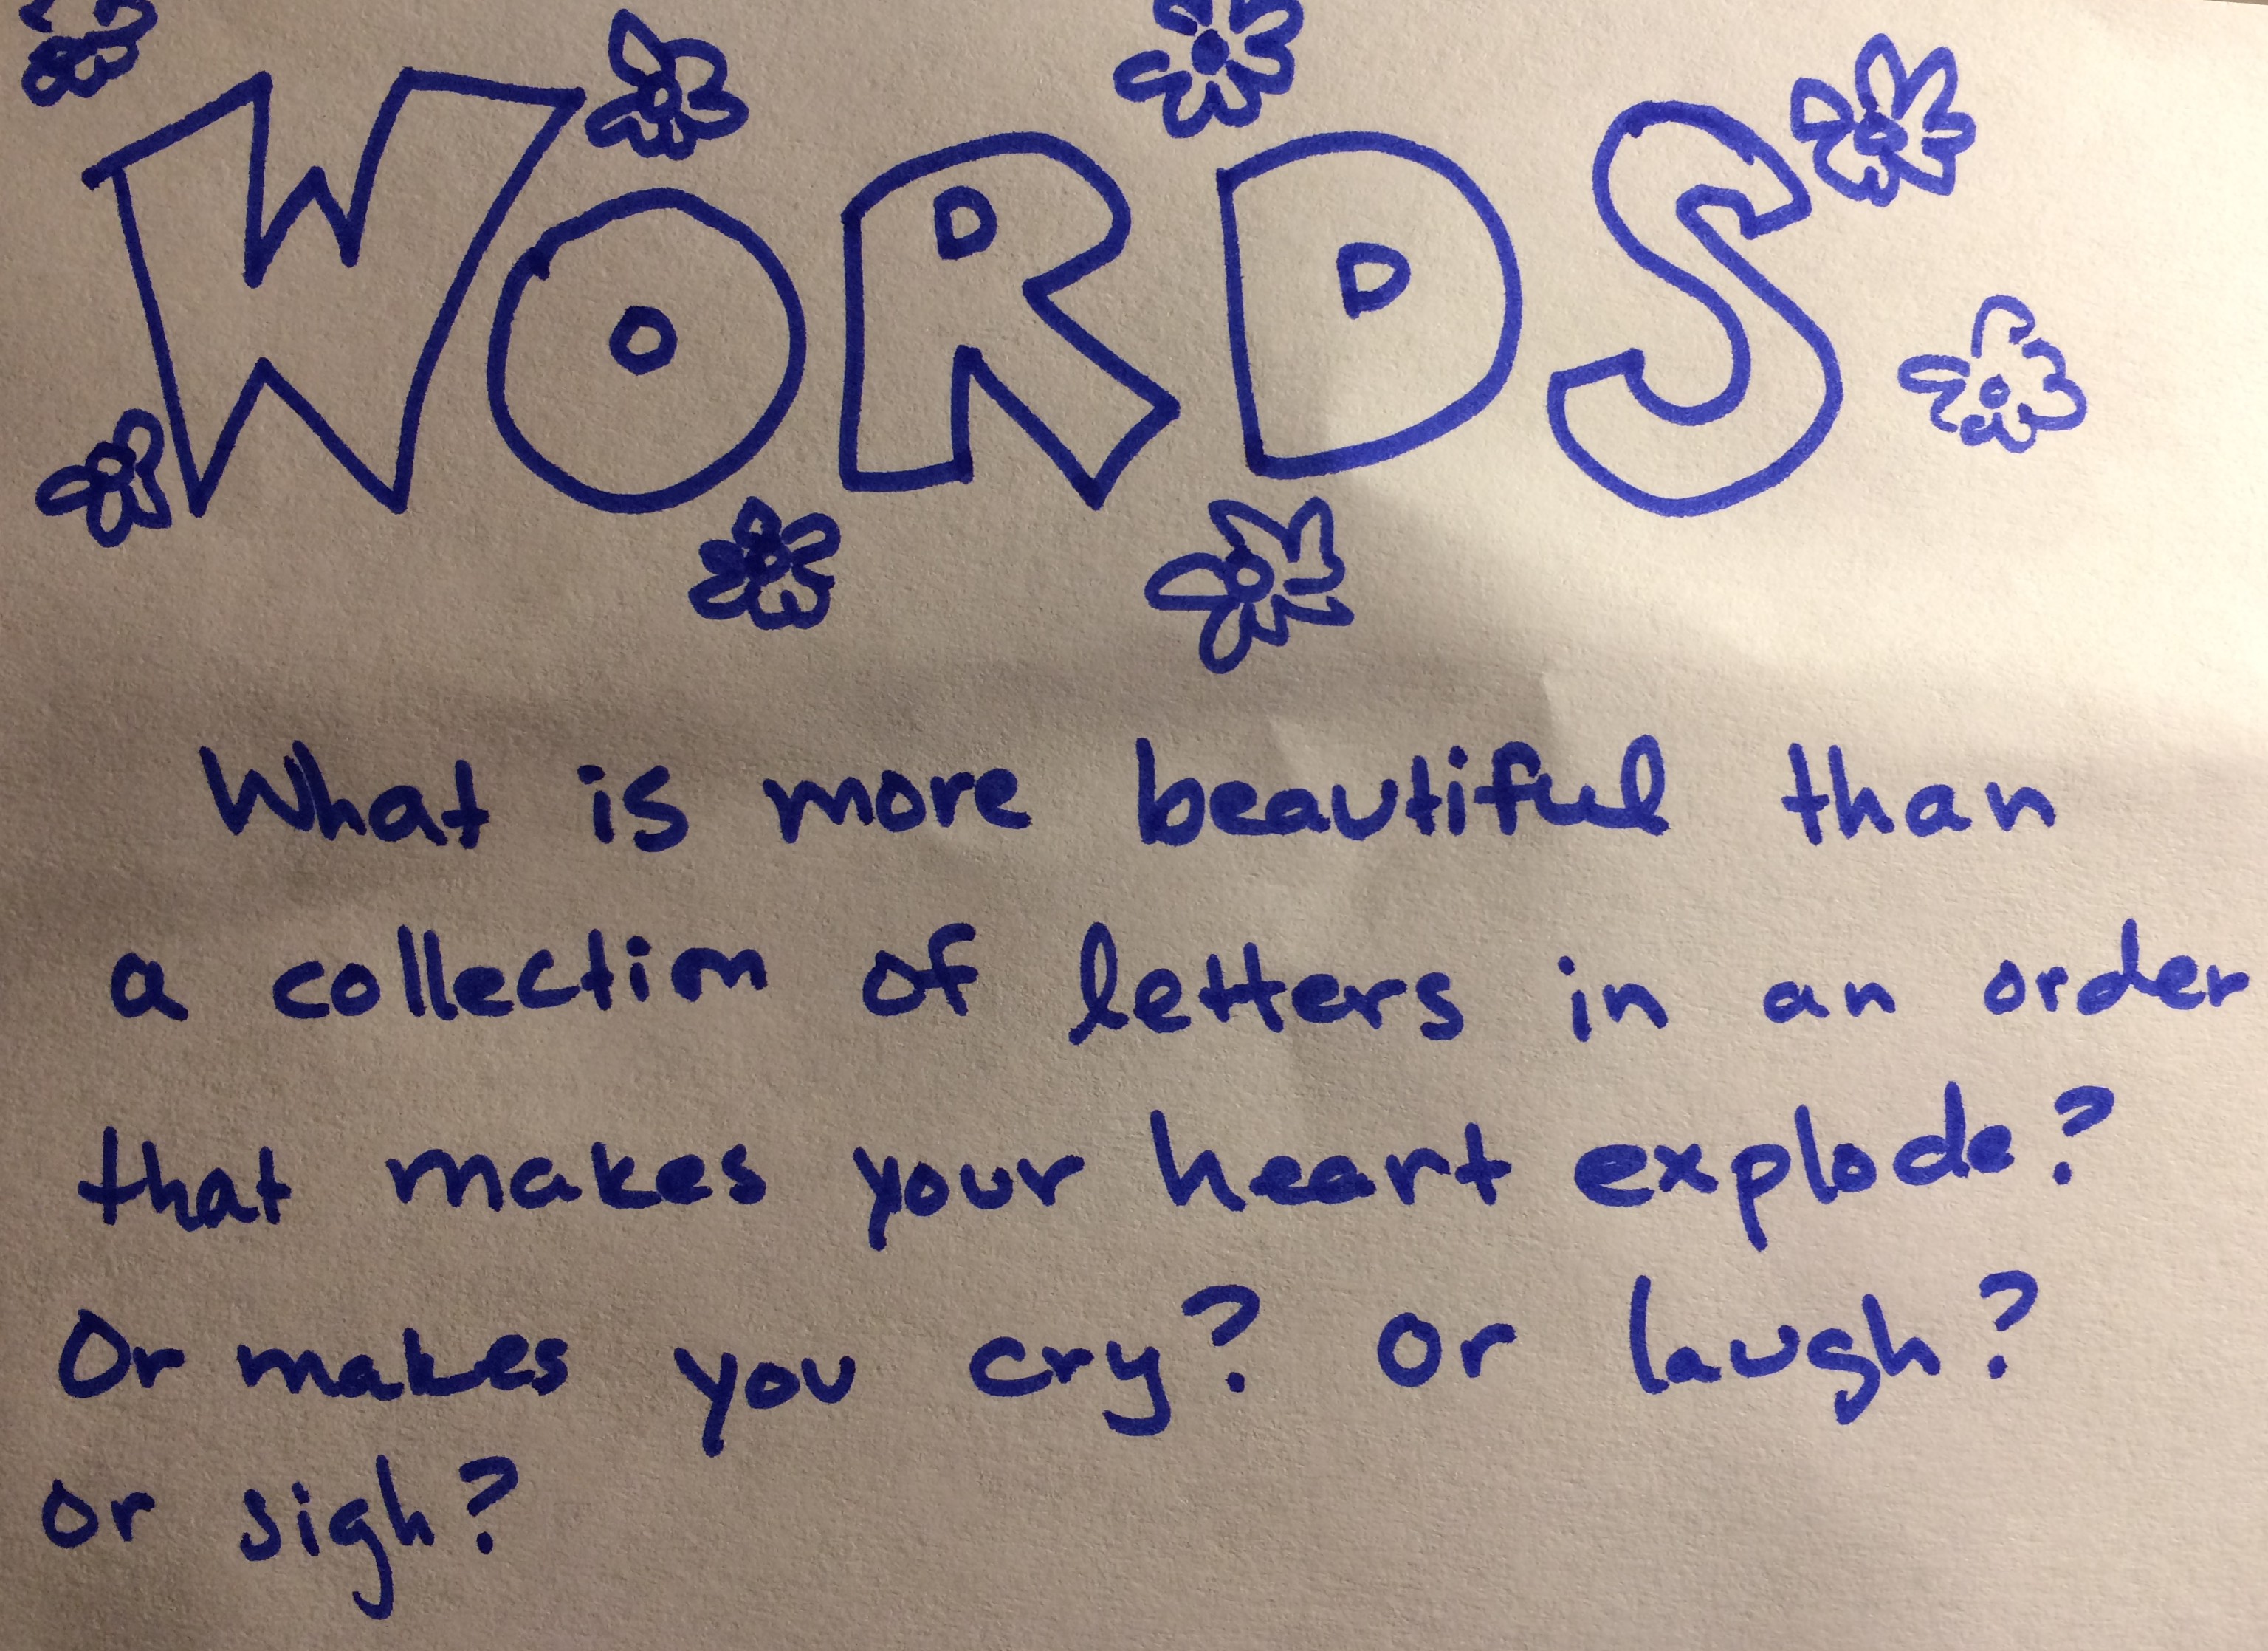 WORDS
What is more beautiful than
a collection of letters in an order
that makes your heart explode?
Or makes you cry? Or laugh?
or sigh?